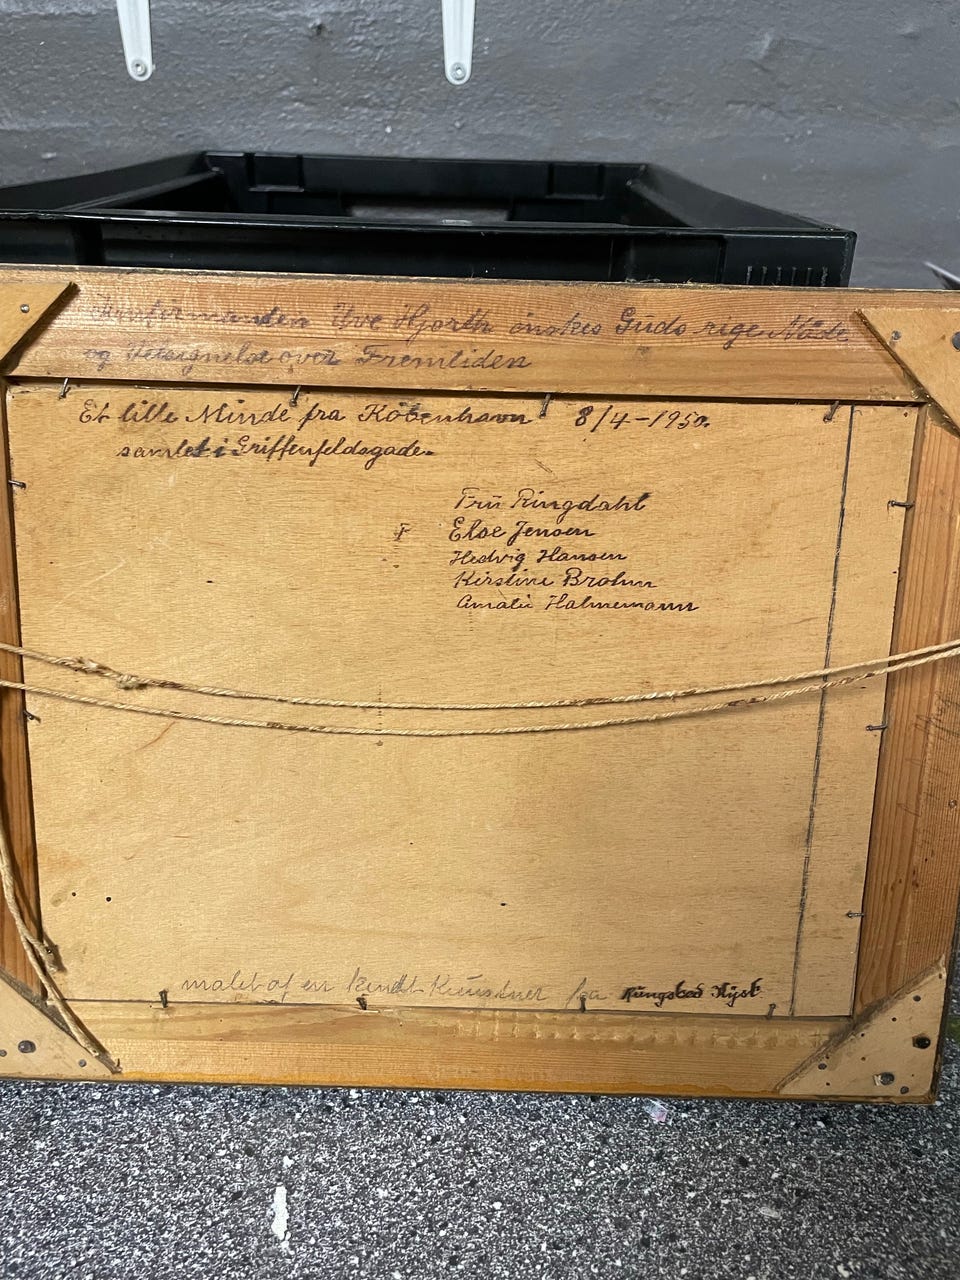 Konfirmanden Uve Hjorth ønskes Guds rige Nåde
og Velsignelse over Fremtiden
Et lille Minde fra København 8/4-1950.
samlet i Griffenfeldsgade.
Frü Ringdahl
F Else Jensen
Hedvig Hansen
Kirstine Brohm
Amalie Halmemann
malet af en kendt Künstner fra Rungsted Kyst